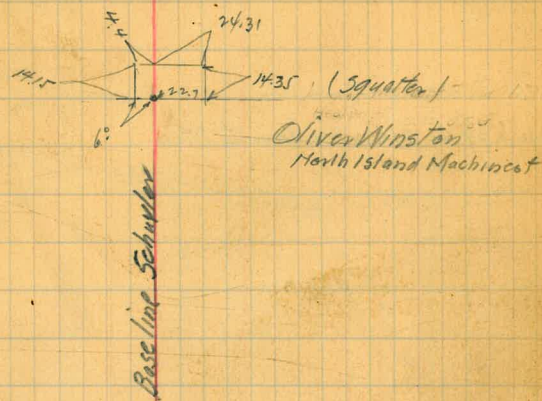 24.31
14.15
14.35
22.7
6°
(Squatter)
Oliver Winston
North Island Machinest
Baseline Schuyler